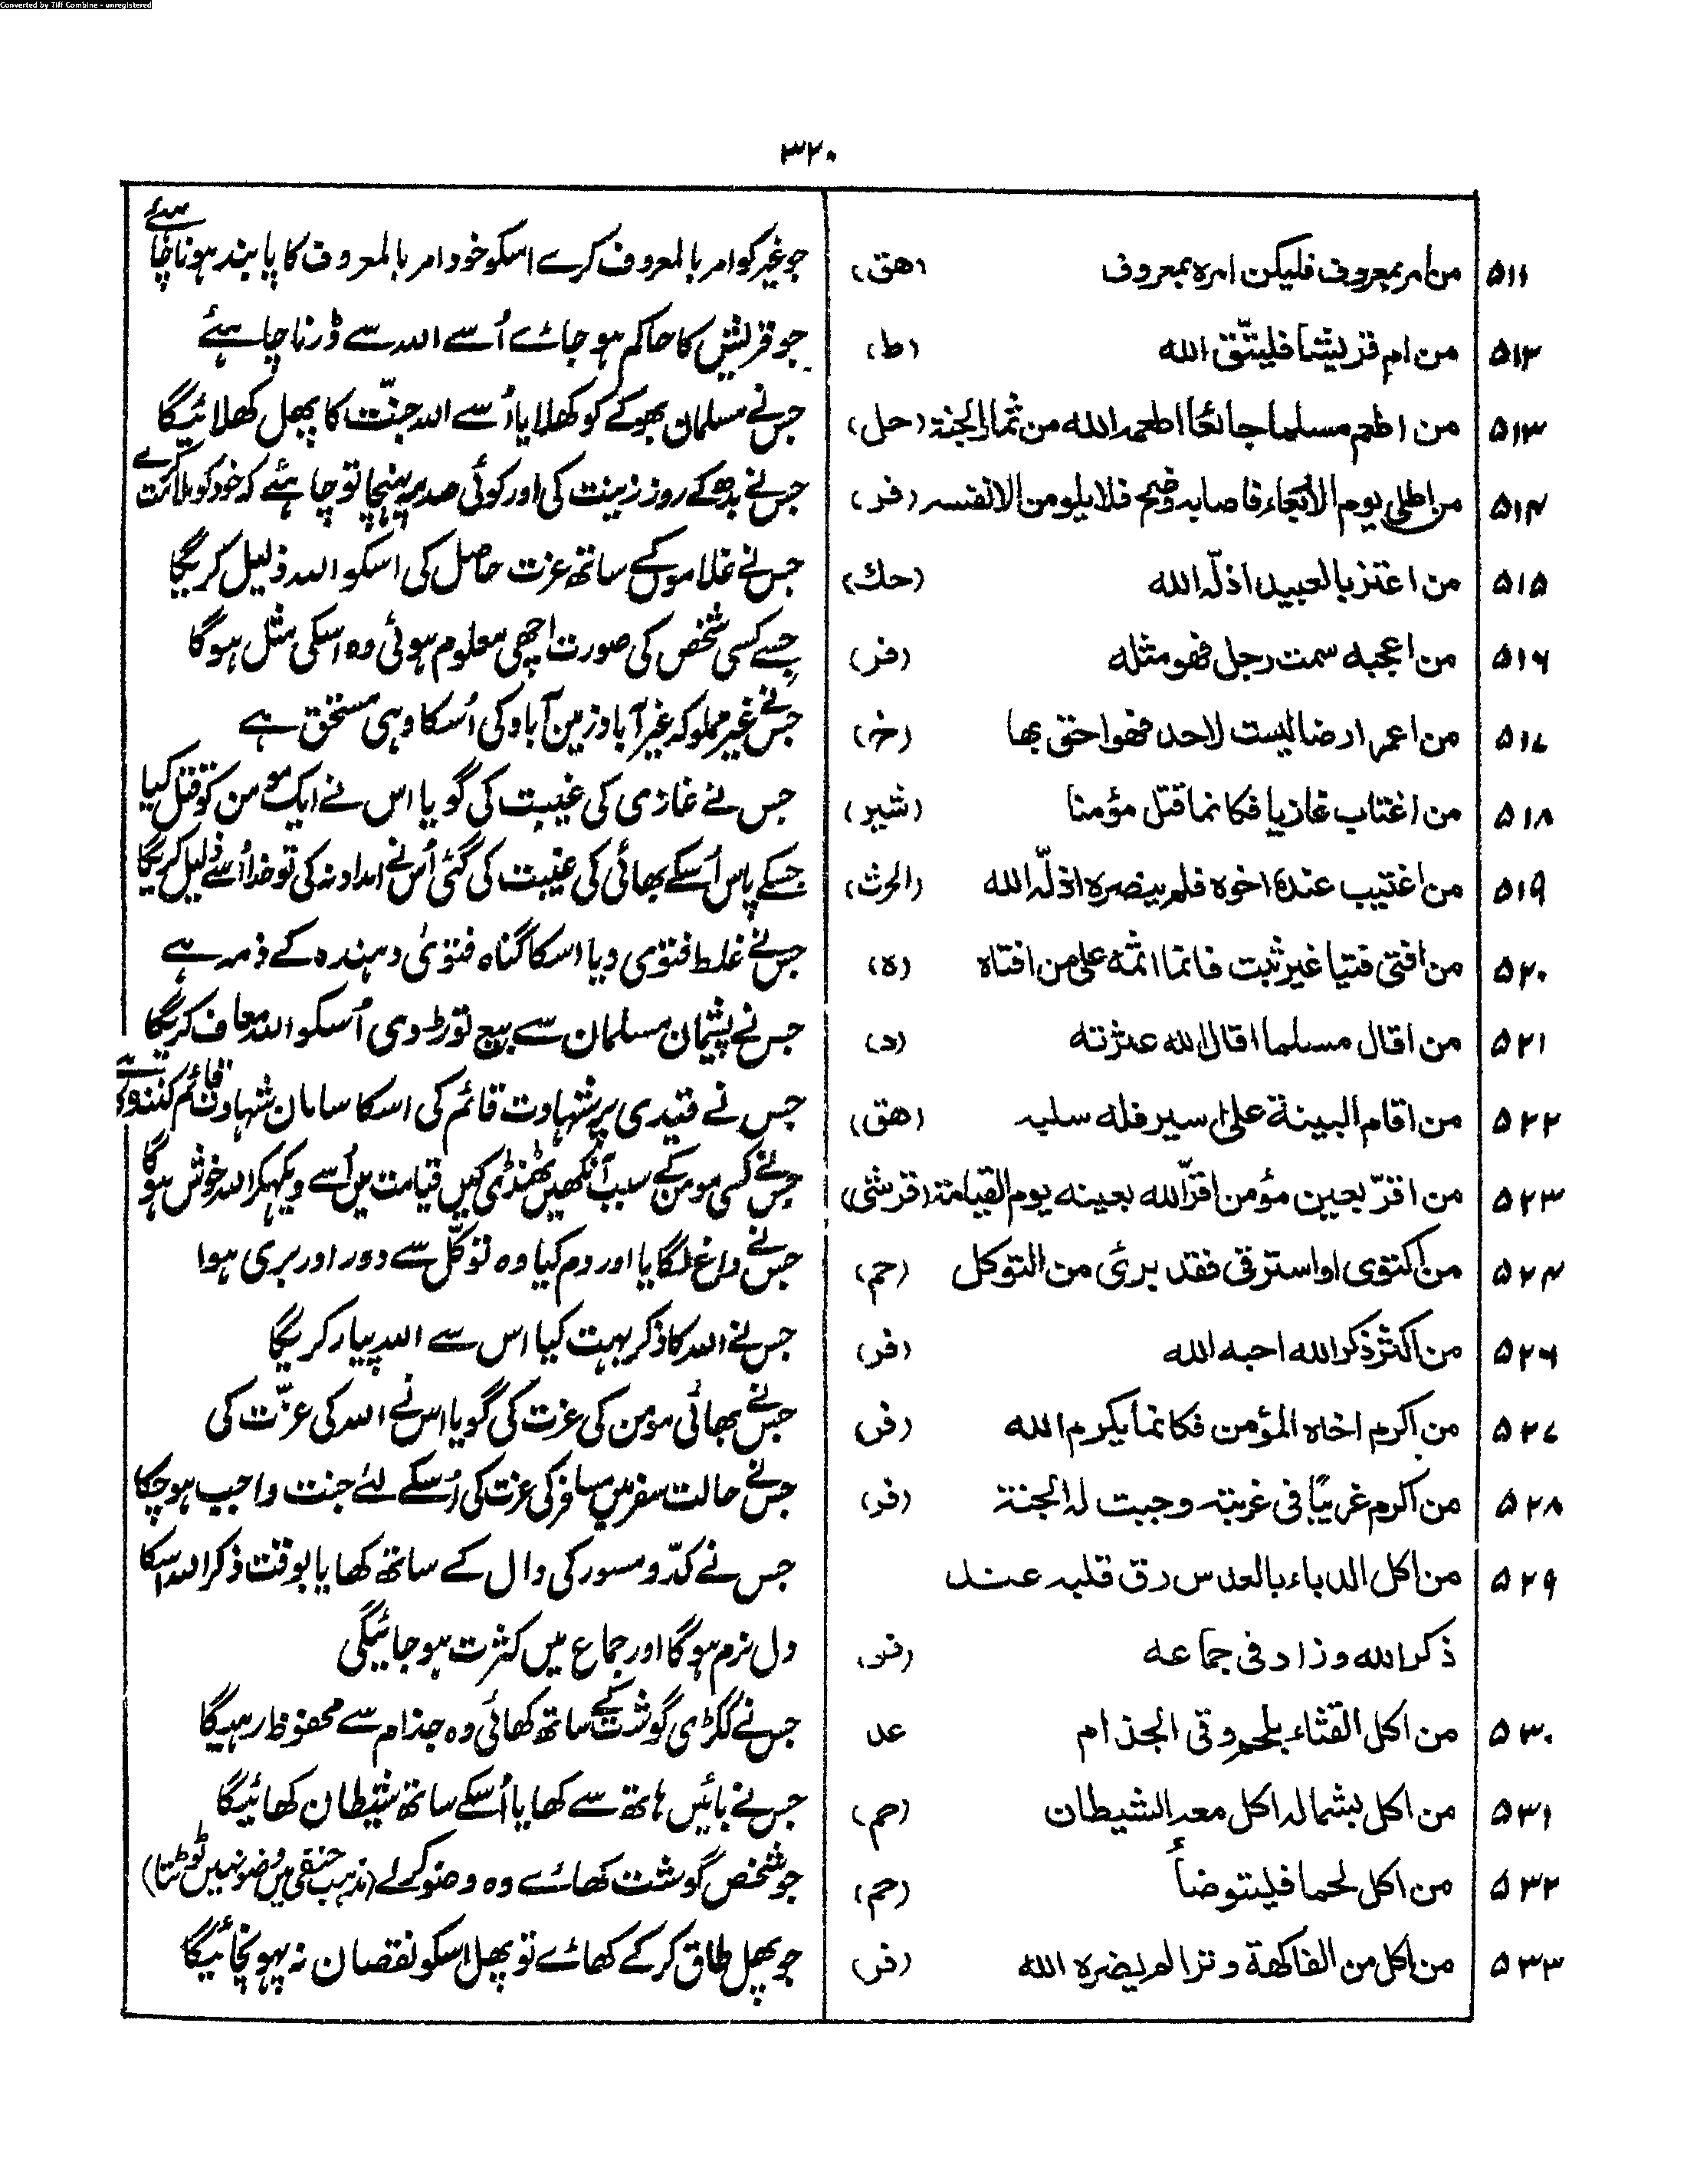 Converted by Tiff Combine - unregistered
۳۲۰
۵۱۱ من امر بمعروف فليكن امره بمعروف (هق) جو غیر کو امر بالمعروف کرے اسکو خود امر بالمعروف کا پابند ہونا چاہئے
۵۱۲ من ام قريشا فليتّق الله (ط) جو قریش کا حاکم ہو جائے اُسے اللہ سے ڈرنا چاہئے
۵۱۳ من اطعم مسلما جائعا اطعمه الله من ثمار الجنة (حل) جس نے مسلمان بھوکے کو کھلایا اُسے اللہ جنّت کا پھل کھلائیگا
۵۱۴ من اطلى يوم الاربعاء فاصابه وضح فلا يلومن الا نفسه (فر) جس نے بدھ کے روز زینت کی اور کوئی صدمہ پہنچا تو چاہئے کہ خود کو ملامت کرے
۵۱۵ من اعتز بالعبيد اذلّه الله (حك) جس نے غلاموں کے ساتھ عزت حاصل کی اسکو اللہ ذلیل کریگا
۵۱۶ من اعجبه سمت رجل فهو مثله (فر) جسے کسی شخص کی صورت اچھی معلوم ہوئی وہ اسکی مثل ہوگا
۵۱۷ من اعمر ارضا ليست لاحد فهو احق بها (خ) جس نے غیر مملوکہ غیر آباد زمین آباد کی اُسکا وہی مستحق ہے
۵۱۸ من اغتاب غازيا فكانما قتل مؤمنا (شير) جس نے غازی کی غیبت کی گویا اس نے ایک مومن کو قتل کیا
۵۱۹ من اغتيب عنده اخوه فلم ينصره اذلّه الله (الحرث) جسکے پاس اُسکے بھائی کی غیبت کی گئی اُس نے امداد نہ کی تو خدا اُسے ذلیل کریگا
۵۲۰ من افتى فتيا غير ثبت فانما اثمه على من افتاه (ه) جس نے غلط فتوی دیا اسکا گناہ فتویٰ دہندہ کے ذمہ ہے
۵۲۱ من اقال مسلما اقال الله عثرته (د) جس نے پشیمان مسلمان سے بیع توڑ دی اُسکو اللہ معاف کریگا
۵۲۲ من اقام البينة على اسير فله سلبه (هق) جس نے قیدی پر شہادت قائم کی اسکا سامان شہادت قائم کنندہ کا ہے
۵۲۳ من اقرّ بعين مؤمن اقرّ الله بعينه يوم القيامة (قرشى) جس نے کسی مومن کے سبب آنکھیں ٹھنڈی کیں قیامت میں اُسے دیکہکر اللہ خوش ہوگا
۵۲۴ من اكتوى او استرقى فقد برئ من التوكل (حم) جس نے داغ لگایا اور دم کیا وہ توکّل سے دور اور بری ہوا
۵۲۶ من اكثر ذكر الله احبه الله (فر) جس نے اللہ کا ذکر بہت کیا اس سے اللہ پیار کریگا
۵۲۷ من اكرم اخاه المؤمن فكانما يكرم الله (فر) جس نے بھائی مومن کی عزت کی گویا اس نے اللہ کی عزّت کی
۵۲۸ من اكرم غريبًا فى غربته وجبت له الجنة (فر) جس نے حالت سفر میں مسافر کی عزت کی اُسکے لئے جنت واجب ہو چکا
۵۲۹ من اكل الدباء بالعدس رق قلبه عند جس نے کدّو مسور کی دال کے ساتھ کھایا بوقت ذکر اللہ اسکا
ذكر الله وزاد فى جماعه (فر) دل نرم ہوگا اور جماع میں کثرت ہو جائیگی
۵۳۰ من اكل القثاء بلحم وقى الجذام عد جس نے ککڑی گوشت کے ساتھ کھائی وہ جذام سے محفوظ رہیگا
۵۳۱ من اكل بشماله اكل معه الشيطان (حم) جس نے بائیں ہاتھ سے کھایا اُسکے ساتھ شیطان کھائیگا
۵۳۲ من اكل لحما فليتوضأ (حم) جو شخص گوشت کھائے وہ وضو کرلے (مذہب حنفی میں وضو نہیں ٹوٹتا)
۵۳۳ من اكل من الفاكهة وترا لم يضره الله (فر) جو پھل طاق کرکے کھائے تو پھل اسکو نقصان نہ پہونچائیگا